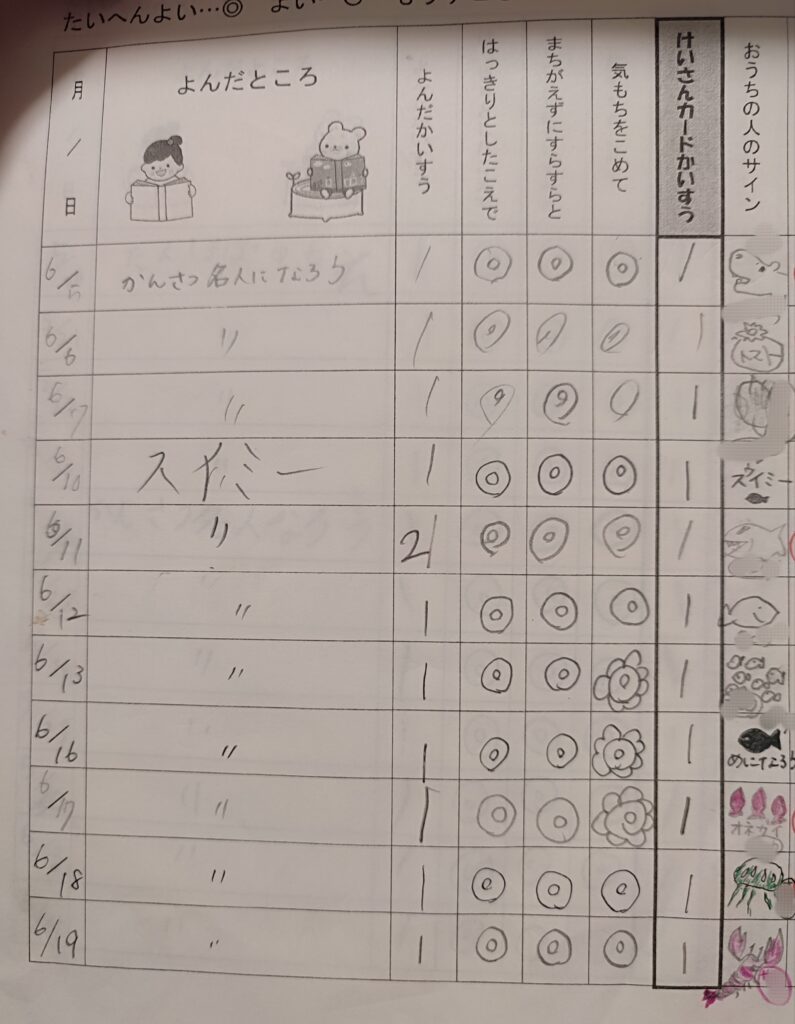 たいへんよい…◎
月/日 よんだところ よんだかいすう はっきりとしたこえで まちがえずにすらすらと 気もちをこめて けいさんカードかいすう おうちの人のサイン
6/5 かんさつ名人になろう 1 ◎ ◎ ◎ 1
6/6 〃 1 ◎ ◎ ◎ 1 トマト
6/7 〃 1 ◎ ◎ ○ 1
6/10 スイミー 1 ◎ ◎ ◎ 1 スイミー
6/11 〃 2 ◎ ◎ ◎ 1
6/12 〃 1 ◎ ◎ ◎ 1
6/13 〃 1 ◎ ◎ ◎ 1
6/16 〃 1 ◎ ◎ ◎ 1 めになろう
6/17 〃 1 ◎ ◎ ◎ 1 オネガイ
6/18 〃 1 ◎ ◎ ◎ 1
6/19 〃 1 ◎ ◎ ◎ 1